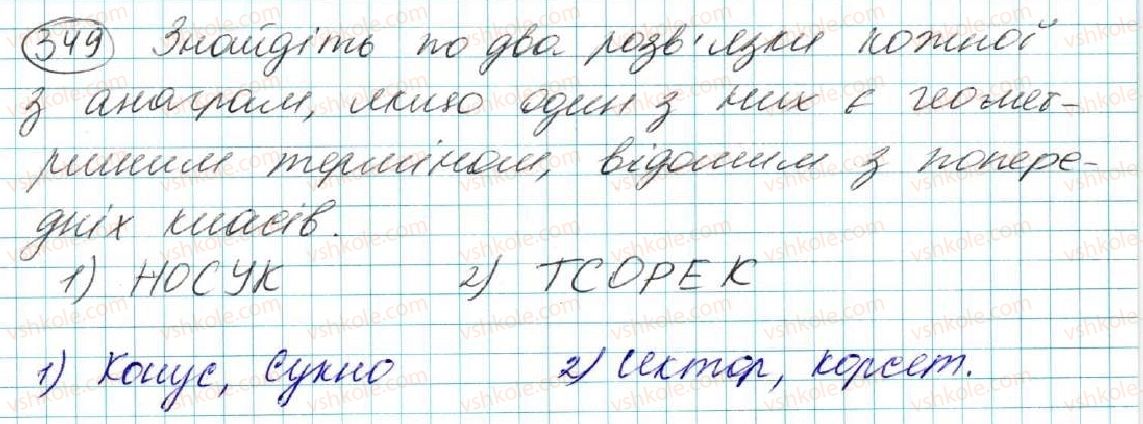 349 Знайдіть по два розв'язки кожної
з анаграм, якщо один з них є геомет-
ричним терміном, відомим з попере-
дніх класів.
1) НОСУК 2) ТСОРЕК
1) Конус, сукно 2) сектор, корсет.